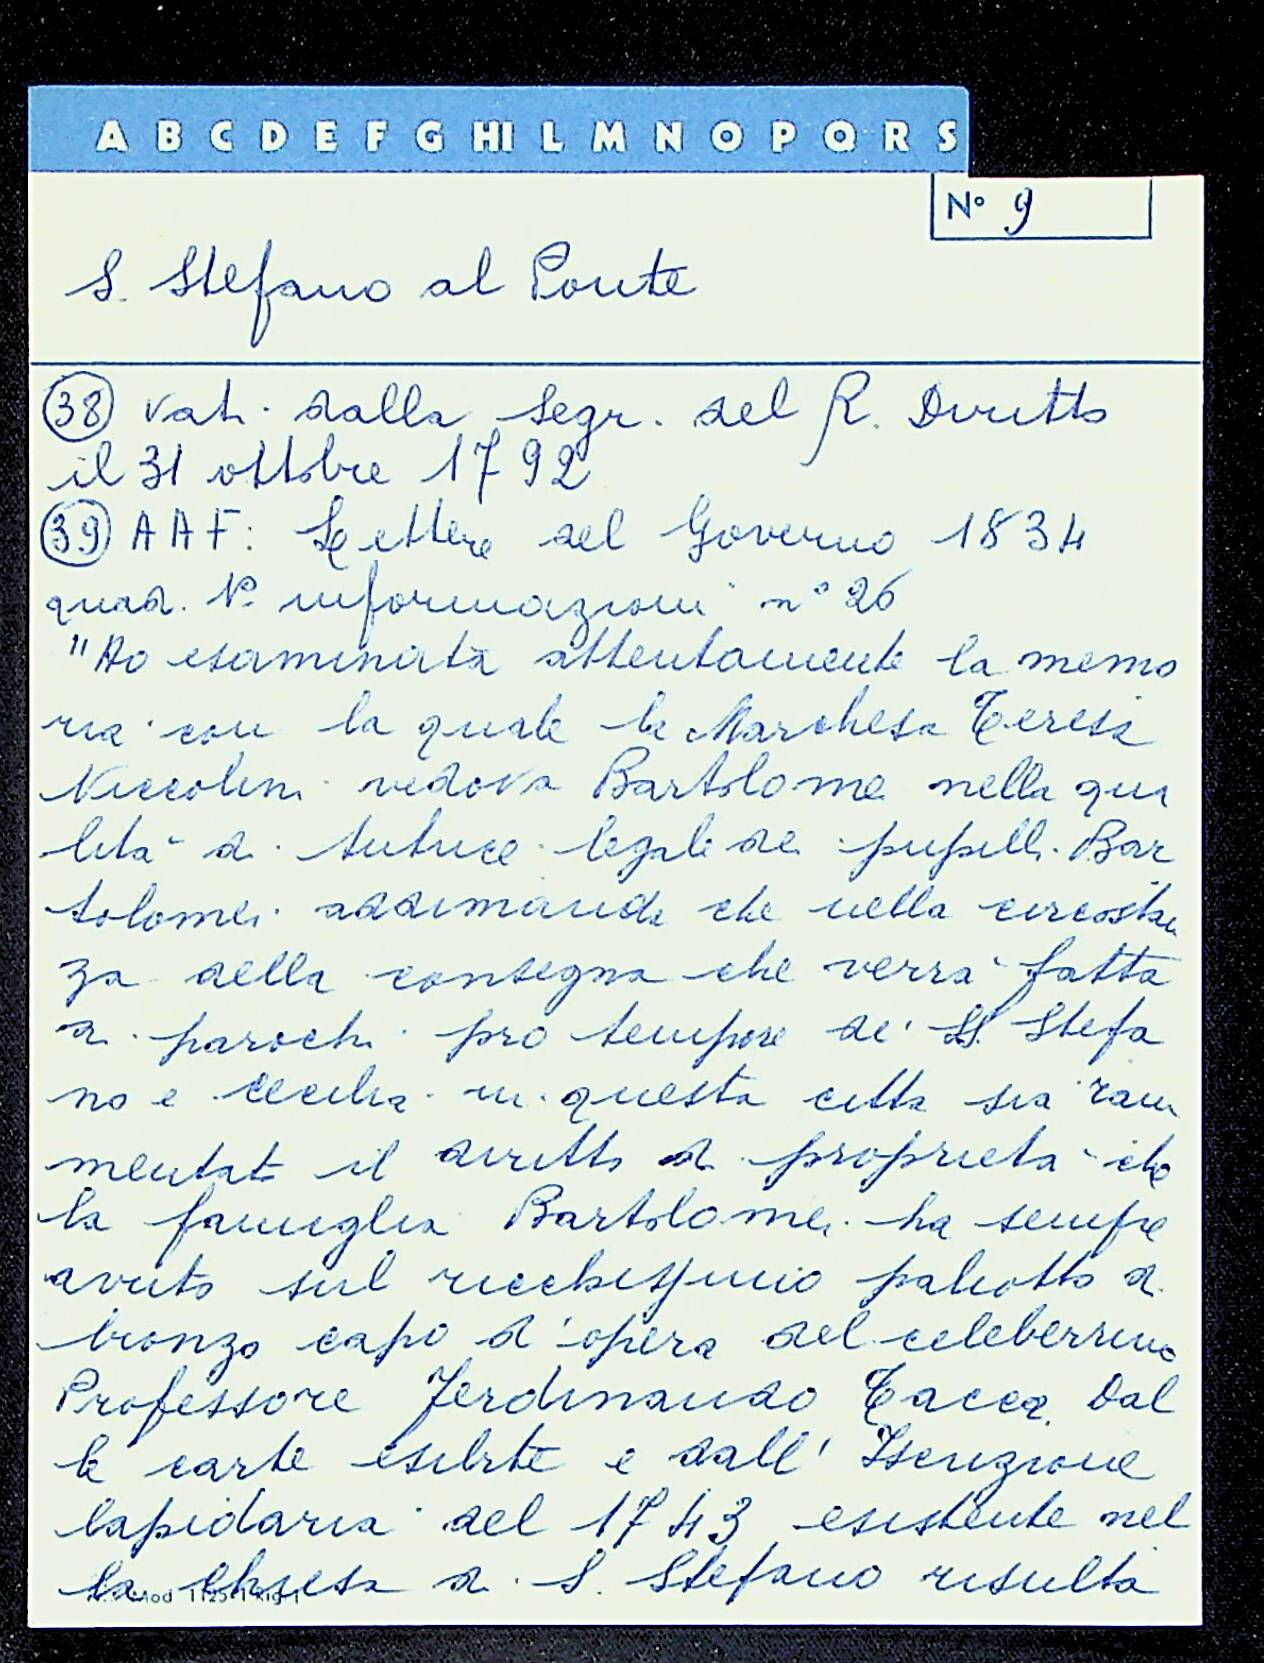 A B C D E F G HI L M N O P Q R S
N° 9
S. Stefano al Ponte
(38) Vat. dalla Segr. del R. Diritto
il 31 ottobre 1792
(39) AAF: Lettere del Governo 1834
quad. N° informazioni n° 26
"Ho esaminata attentamente la memo
ria con la quale la Marchesa Teresa
Niccolini vedova Bartolomei nella qua
lità di tutrice legale dei pupilli Bar
tolomei addimanda che nella circostan
za della consegna che verrà fatta
ai parochi pro tempore de' SS. Stefa
no e Cecilia in questa città sia ram
mentato il diritto di proprietà che
la famiglia Bartolomei ha sempre
avuto sul ricchissimo paliotto di
bronzo capo d'opera del celeberrimo
Professore Ferdinando Tacca. Dal
le carte esibite e dall' Iscrizione
lapidaria del 1743 esistente nel
la chiesa di S. Stefano risulta